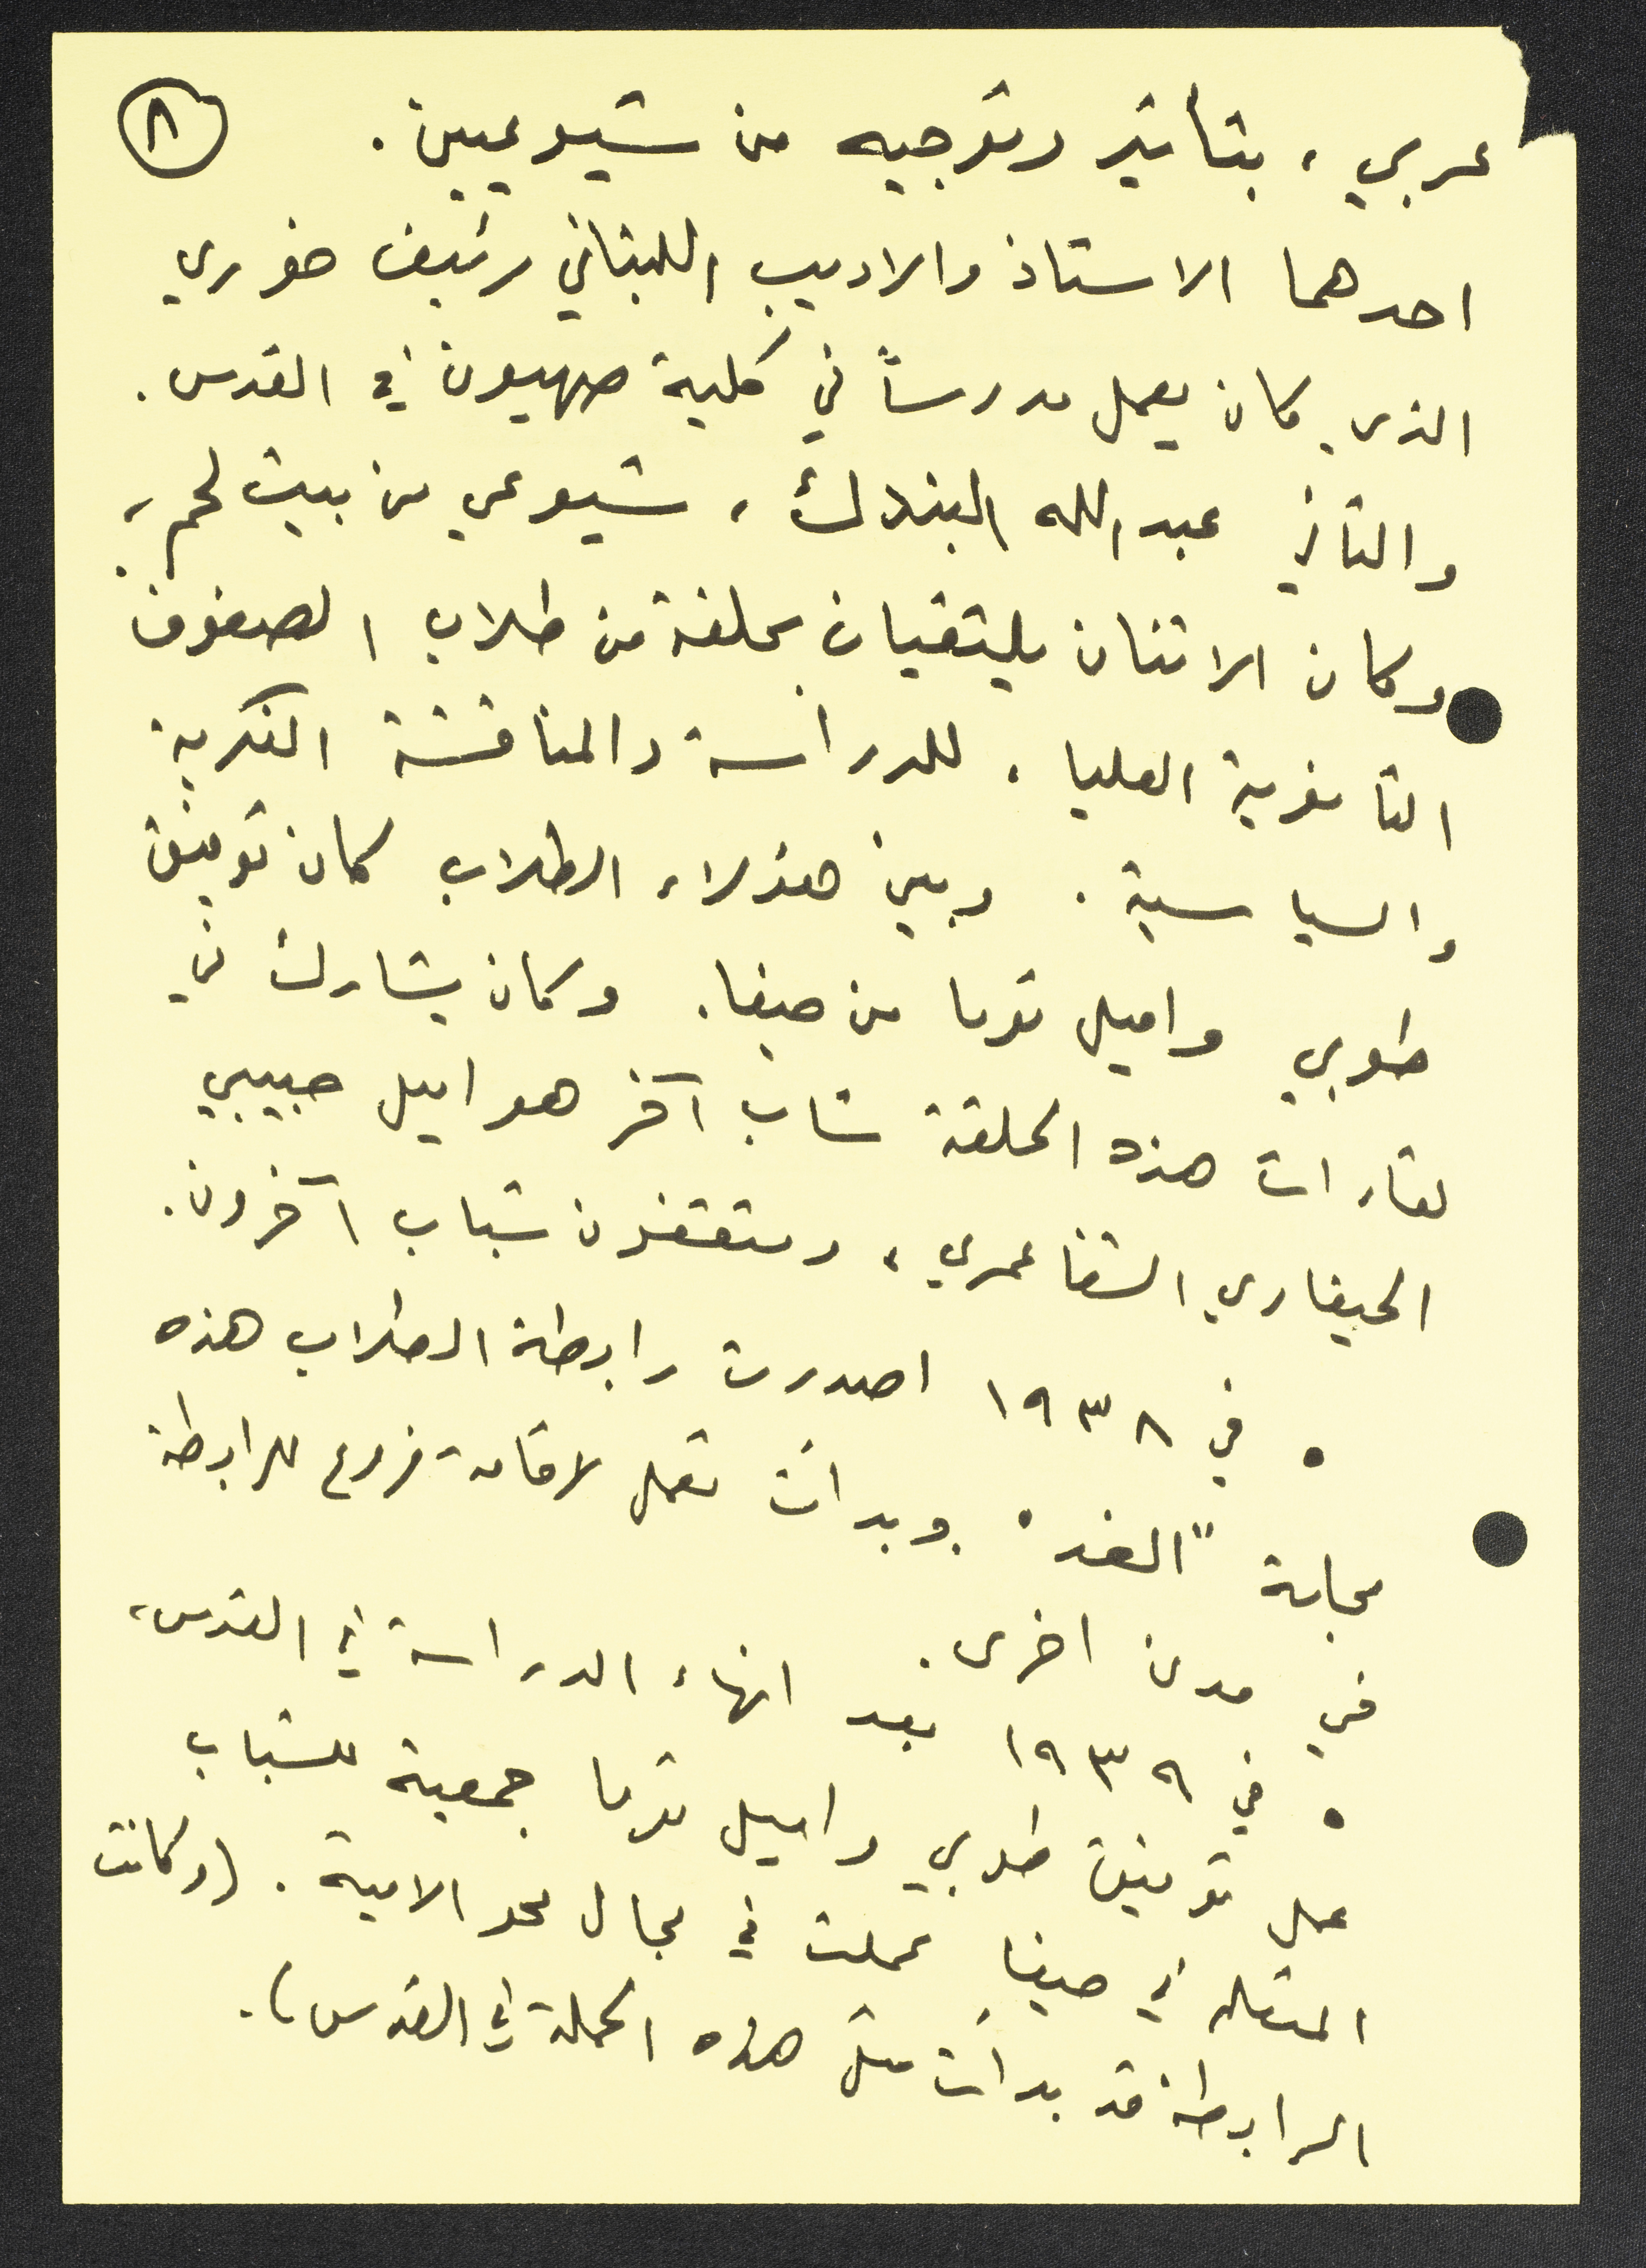 ٨
عربي ، بتأثير وتوجيه من شيوعيين .
احدهما الاستاذ والاديب اللبناني رئيف خوري
الذي كان يعمل مدرساً في كلية صهيون في القدس .
والثاني عبدالله البندك ، شيوعي من بيت لحم ،
وكان الاثنان يلتقيان بحلقة من طلاب الصفوف
الثانوية العليا ، للدراسة والمناقشة الفكرية
والسياسية . وبين هؤلاء الطلاب كان توفيق
طوبي واميل توما من حيفا . وكان يشارك في
لقاءات هذه الحلقة شاب آخر هو اميل حبيبي
الحيفاوي الشفاعمري ، ومثقفون شباب آخرون .
• في ١٩٣٨ اصدرت رابطة الطلاب هذه
مجلة "الغد" وبدأت تعمل لاقامة فروع للرابطة
في مدن اخرى .
• في ١٩٣٩ بعد انهاء الدراسة في القدس ،
عمل توفيق طوبي واميل توما جمعية للشباب
المثقف في حيفا عملت في مجال محو الامية . (وكانت
الرابطة قد بدأت مثل هذه الحملة في القدس) .